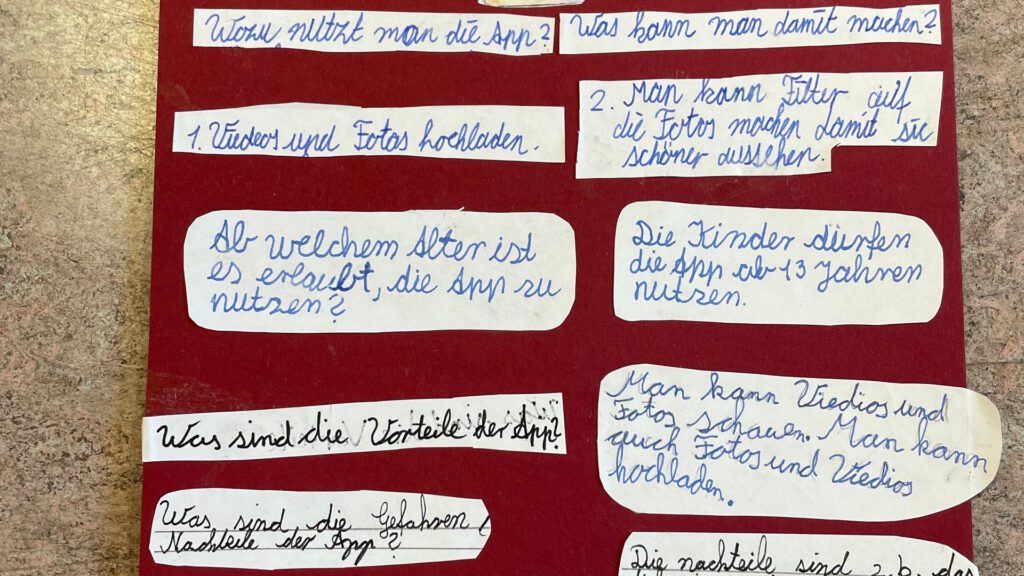 Wozu nützt man die App?
Was kann man damit machen?
1. Viedeos und Fotos hochladen.
2. Man kann Filter auf
die Fotos machen damit sie
schöner aussehen.
Ab welchem Alter ist
es erlaubt, die App zu
nutzen?
Die Kinder dürfen
die App ab 13 Jahren
nutzen.
Was sind die Vorteile der App?
Man kann Viedios und
Fotos schauen. Man kann
auch Fotos und Viedios
hochladen.
Was sind die Gefahren /
Nachteile der App?
Die nachteile sind z.b. das